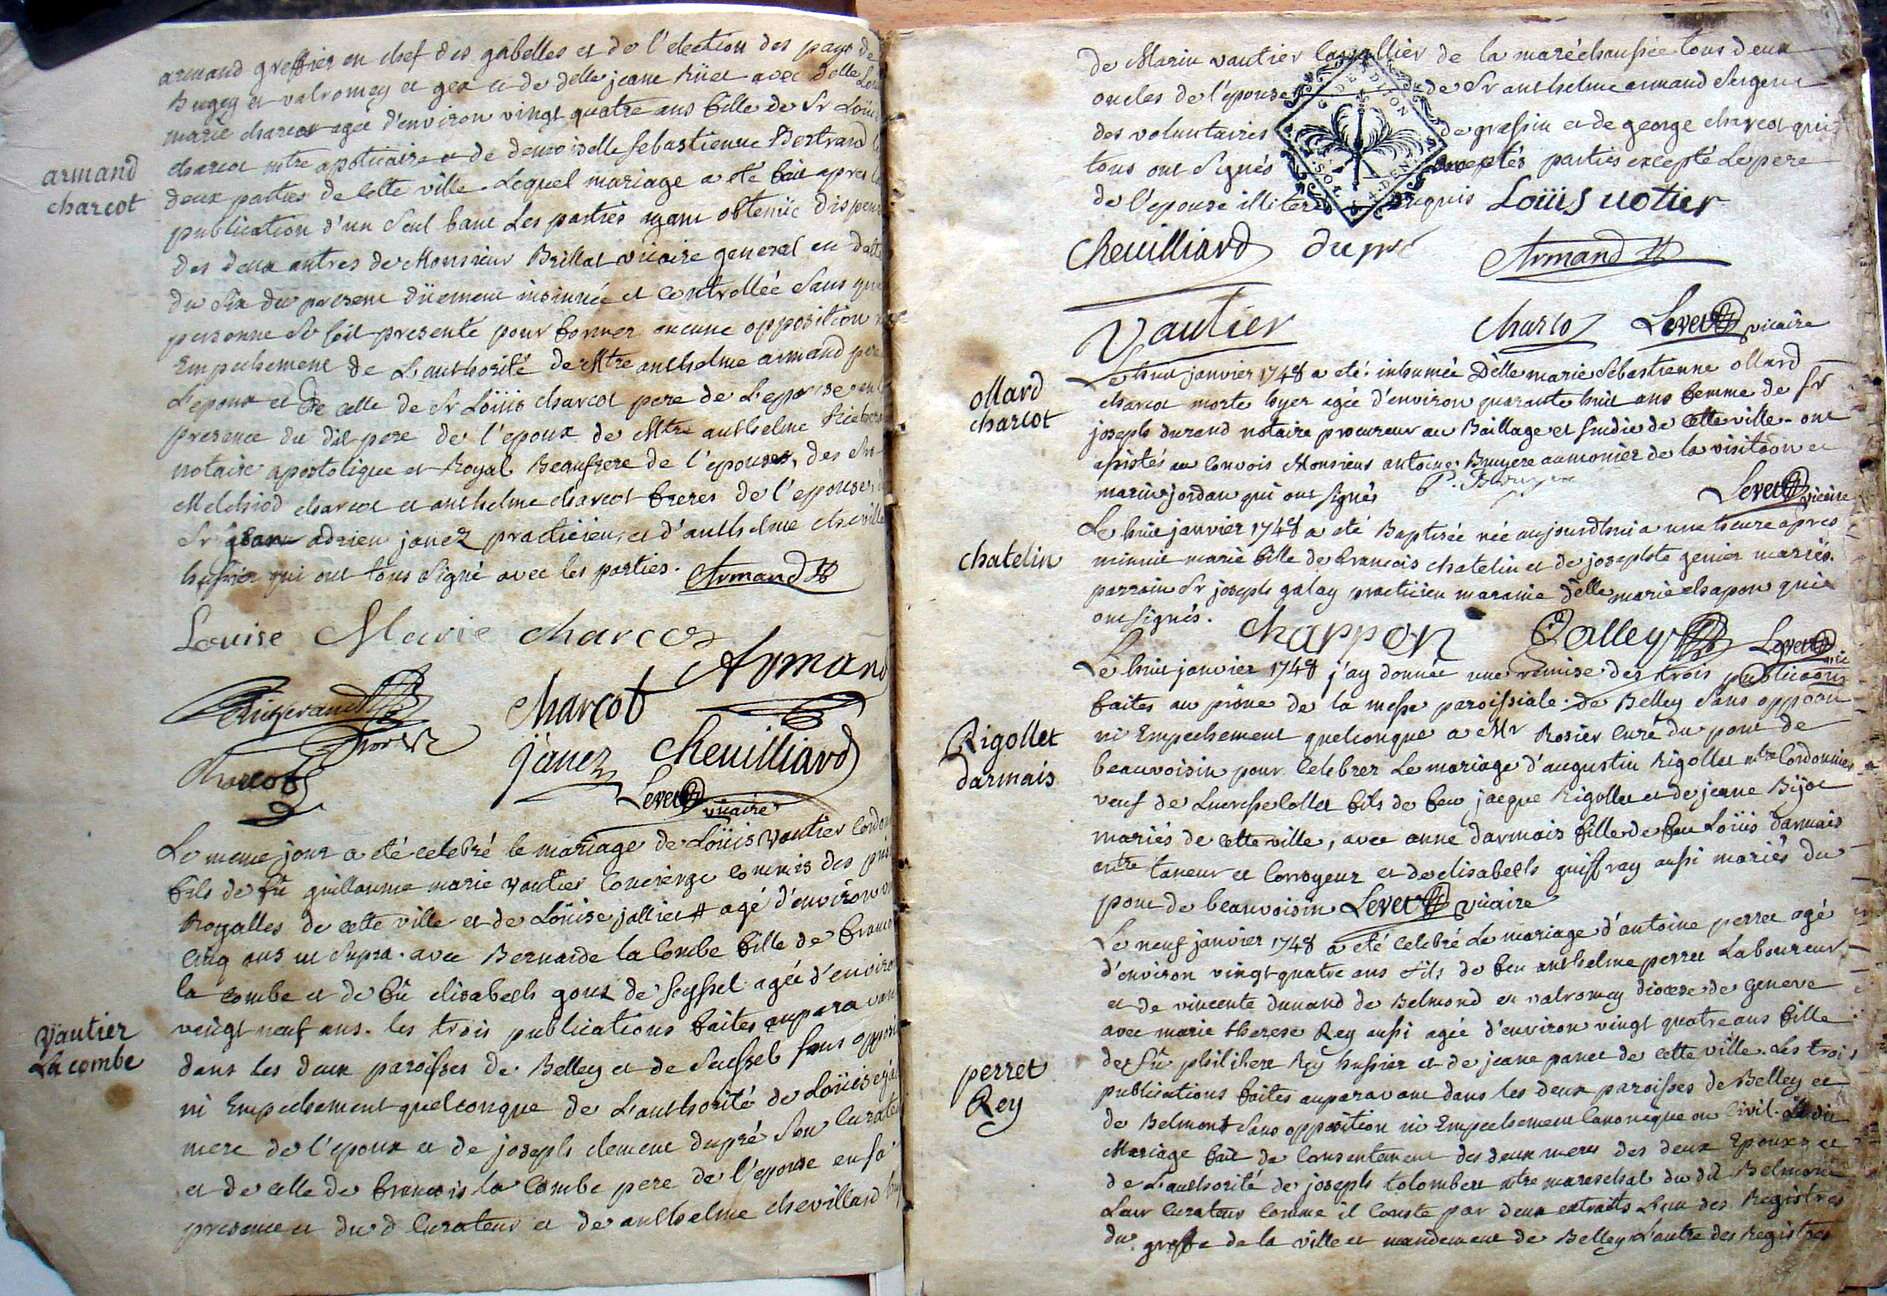 armand greffier en chef des gabelles et de l'election des pays de
Bugey et valromey et gex et de delle jeane Rüet avec delle
marie charcot agée d'environ vingt quatre ans fille de Sr Loüis
charcot mtre apoticaire et de demoiselle Sebastienne Bertrand
armand
charcot
deux parties de cette ville. Lequel mariage a eté fait apres la
publication d'un Seul banc Les parties ayant obtenüe dispense
des deux autres de Monsieur Brillat vicaire general en datte
du Six du present düement insinüée et controllée Sans que
personne Se soit presenté pour former aucune opposition
Empechement de L'authorité de Mtre anthelme armand pere
L'epoux et de celle de Sr Loüis charcot pere de L'epouse en
presence du dit pere de l'epoux de Mtre anthelme
notaire apostolique et Royal Beaufrere de l'epouse, des Srs
Melchiod charcot et anthelme charcot freres de l'epouse,
Sr adrien janez practicien, et d'anthelme
huissier qui ont tous Signé avec les parties. Armand
Louise Marie charcot
Armand
charcot
janez chevilliard
Levet
vicaire
Le meme jour a eté celebré le mariage de Loüis vautier
fils de fû guillaume marie vautier concierge commis des
Royalles de cette ville et de Loüise jallier agé d'environ
cinq ans ut Supra. avec Bernarde la Combe fille de
la combe et de fû elisabeth goux de Seyssel agée d'environ
vingt neuf ans. les trois publications faites auparavant
vautier
La combe
dans les deux paroisses de Belley et de Seissel Sans
ni Empechement quelconque de L'authorité de Loüise
mere de l'epoux et de joseph clement dupré Son curateur
et de celle de francois la Combe pere de l'epouse en sa
presence et du d curateur et de anthelme chevillard
de Marin vautier cavallier de la maréchaussée tous deux
oncles de l'epouse de Sr anthelme armand Sergent
des voluntaires de grassin et de george charcot qui
tous ont Signés parties excepté Le pere
de l'epouse illiteré enquis Loüis votier
chevilliard dupré Armand
Vautier charcot Levet vicaire
ollard
charcot
Le huit janvier 1748 a eté inhumée Delle marie Sebastienne ollard
charcot morte hyer agée d'environ quarante huit ans femme de Sr
joseph durand notaire procureur au Baillage et sindic de cette ville. ont
assistés au convois Monsieur antoine Bruyere aumonier de la visitaon et
marin jordan qui ont signés Levet vicaire
chatelin
Le huit janvier 1748 a eté Baptisée née aujourdhui a une heure apres
minuit marie fille de francois chatelin et de josephte genier mariés.
parrain Sr joseph galay practicien maraine delle marie chapon qui
ont signés. chappon Galley Levet
Rigollet
darmais
Le huit janvier 1748 j'ay donnée une remise des trois publicaons
faites au prône de la messe paroissiale de Belley Sans opposon
ni Empechement quelconque a Mr Rosier curé du pont de
beauvoisin pour celebrer Le mariage d'augustin Rigollet mtre Cordonnier
veuf de Lucresse Collet fils de feu jacque Rigollet et de jeane Bijot
mariés de cette ville, avec anne darmais fille de feu Loüis darmais
mtre taneur et corroyeur et de elisabeth guiffrey aussi mariés du
pont de beauvoisin Levet vicaire
perret
Rey
Le neuf janvier 1748 a eté celebré Le mariage d'antoine perret agé
d'environ vingt quatre ans fils de feu anthelme perret Laboureur
et de vincente dunand de Belmond en valromey diocese de geneve
avec marie therese Rey aussi agée d'environ vingt quatre ans fille
de fû philibert Rey huissier et de jeane panet de cette ville. Les trois
publications faites auparavant dans les deux paroisses de Belley et
de Belmont Sans opposition ni Empechement Canonique ou Civil. Le dit
Mariage fait de Consentement des deux meres des deux Epoux et
de L'authorité de joseph Colombet mtre mareschal du dit Belmont
Leur Curateur Comme il Conste par deux extraits L'un des Registres
du greffe de la ville et mandement de Belley L'autre des Registres